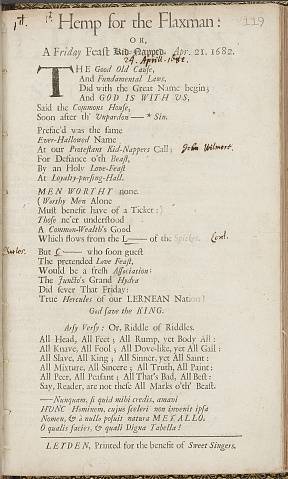 119
1st. 1t. Hemp for the Flaxman:
OR,
A Friday Feast Kid-Napped. Apr. 21. 1682.
24. Aprill. 1682.
THE Good Old Cause,
And Fundamental Laws,
Did with the Great Name begin;
And GOD IS WITH US,
Said the Commons House,
Soon after th' Unpardon — * Sin.
Prefac'd was the same
Ever-Hallowed Name
At our Protestant Kid-Nappers Call; John Wilmort.
For Defiance o'th Beast,
By an Holy Love-Feast
At Loyalty-pursing-Hall.
MEN WORTHY none.
(Worthy Men Alone
Must benefit have of a Ticket:)
Those ne'er understood
A Common-Wealth's Good
Which flows from the L—— of the Spicket.
But C—— who soon guest
The pretended Love Feast,
Would be a fresh Association:
The Juncto's Grand Hydra
Did sever That Friday:
True Hercules of our LERNEAN Nation!
God save the KING.
Arsy Versy: Or, Riddle of Riddles.
All Head, All Feet; All Rump, yet Body All:
All Knave, All Fool; All Dove-like, yet All Gall:
All Slave, All King; All Sinner, yet All Saint:
All Mixture, All Sincere; All Truth, All Paint:
All Peer, All Peasant; All That's Bad, All Best:
Say, Reader, are not these All Marks o'th' Beast.
—Nunquam, si quid mihi credis, amavi
HUNC Hominem, cujus sceleri non invenit ipsa
Nomen, & à nullo posuit natura METALLO.
O qualis facies, & quali Digna Tabella!
LEYDEN, Printed for the benefit of Sweet Singers.